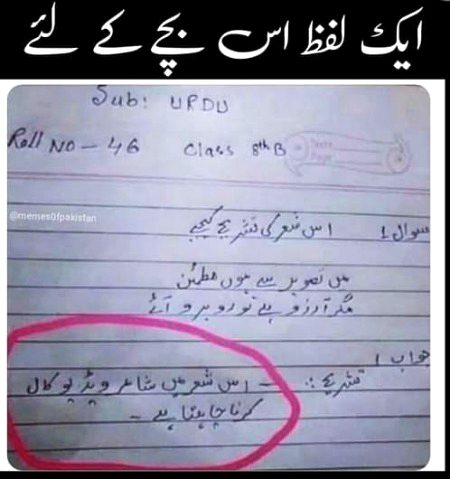 ایک لفظ اس بچے کے لئے
Sub: URDU
Roll No - 46 Class 8th B
Date
Page
@memesOfpakistan
سوال 1 اس شعر کی تشریح کیجیے
میں تصویر سے ہوں مطمئن
مگر آرزو ہے تو روبرو آئے
جواب 1
تشریح :- اس شعر میں شاعر ویڈیو کال
کرنا چاہتا ہے -